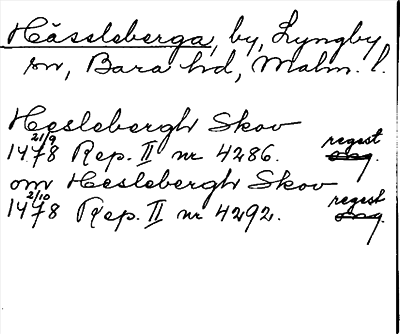 Hässleberga, by, Lyngby
sn, Bara hd, Malm. l.
Heslebergh Skov
1478 21/9 Rep. II nr 4286. regest
om Heslebergh Skov
1478 2/10 Rep. II nr 4292. regest